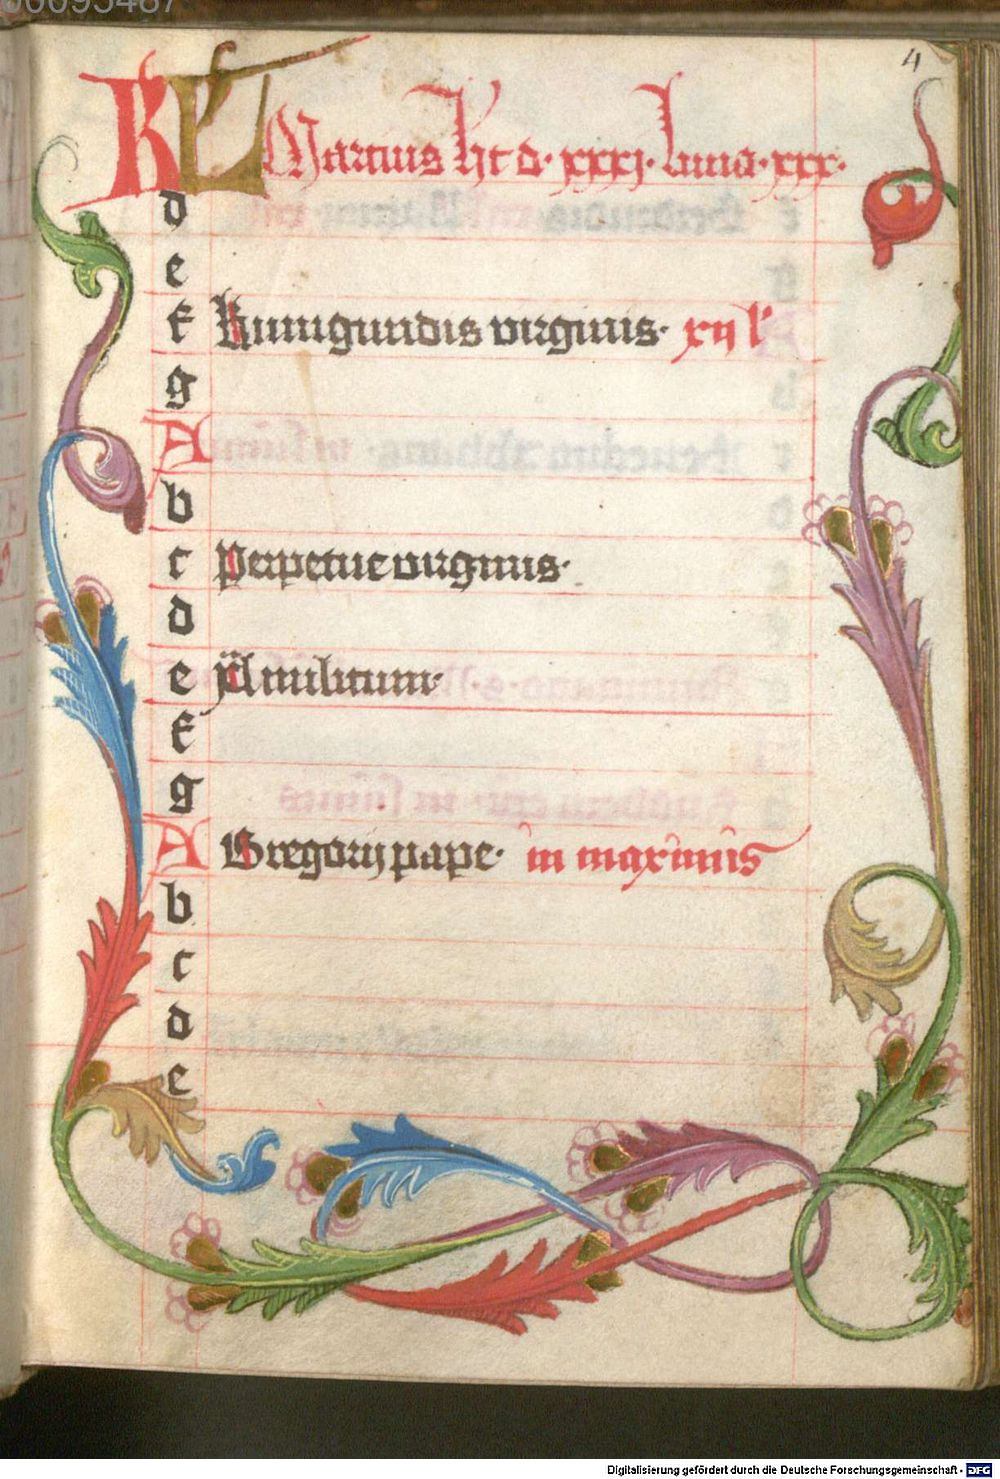 00095487
4
KL Marcius ht d· xxxj· luna· xxx·
d
e
f Kunigundis virginis· xij l
g
A
b
c Perpetue virginis·
d
e xl militum·
f
g
A Gregorij pape· in maximis
b
c
d
e
Digitalisierung gefördert durch die Deutsche Forschungsgemeinschaft - DFG